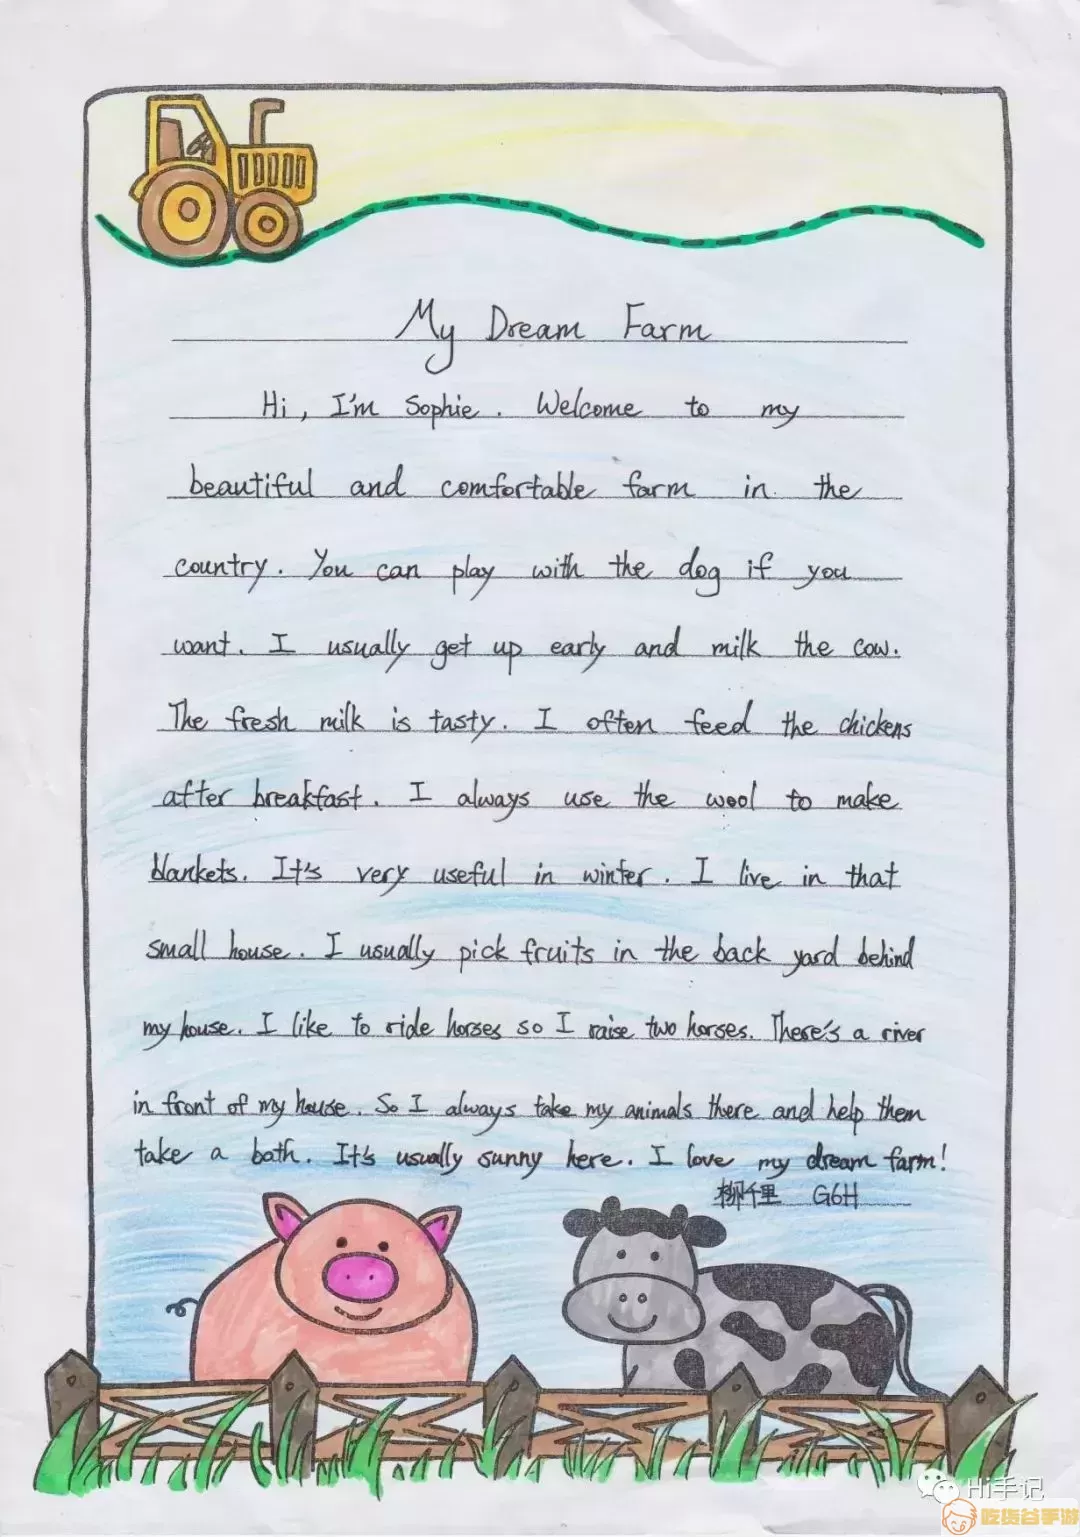 My Dream Farm
Hi, I'm Sophie. Welcome to my
beautiful and comfortable farm in the
country. You can play with the dog if you
want. I usually get up early and milk the cow.
The fresh milk is tasty. I often feed the chickens
after breakfast. I always use the wool to make
blankets. It's very useful in winter. I live in that
small house. I usually pick fruits in the back yard behind
my house. I like to ride horses so I raise two horses. There's a river
in front of my house. So I always take my animals there and help them
take a bath. It's usually sunny here. I love my dream farm!
柳千里 G6H
Hi手记
吃货谷手游